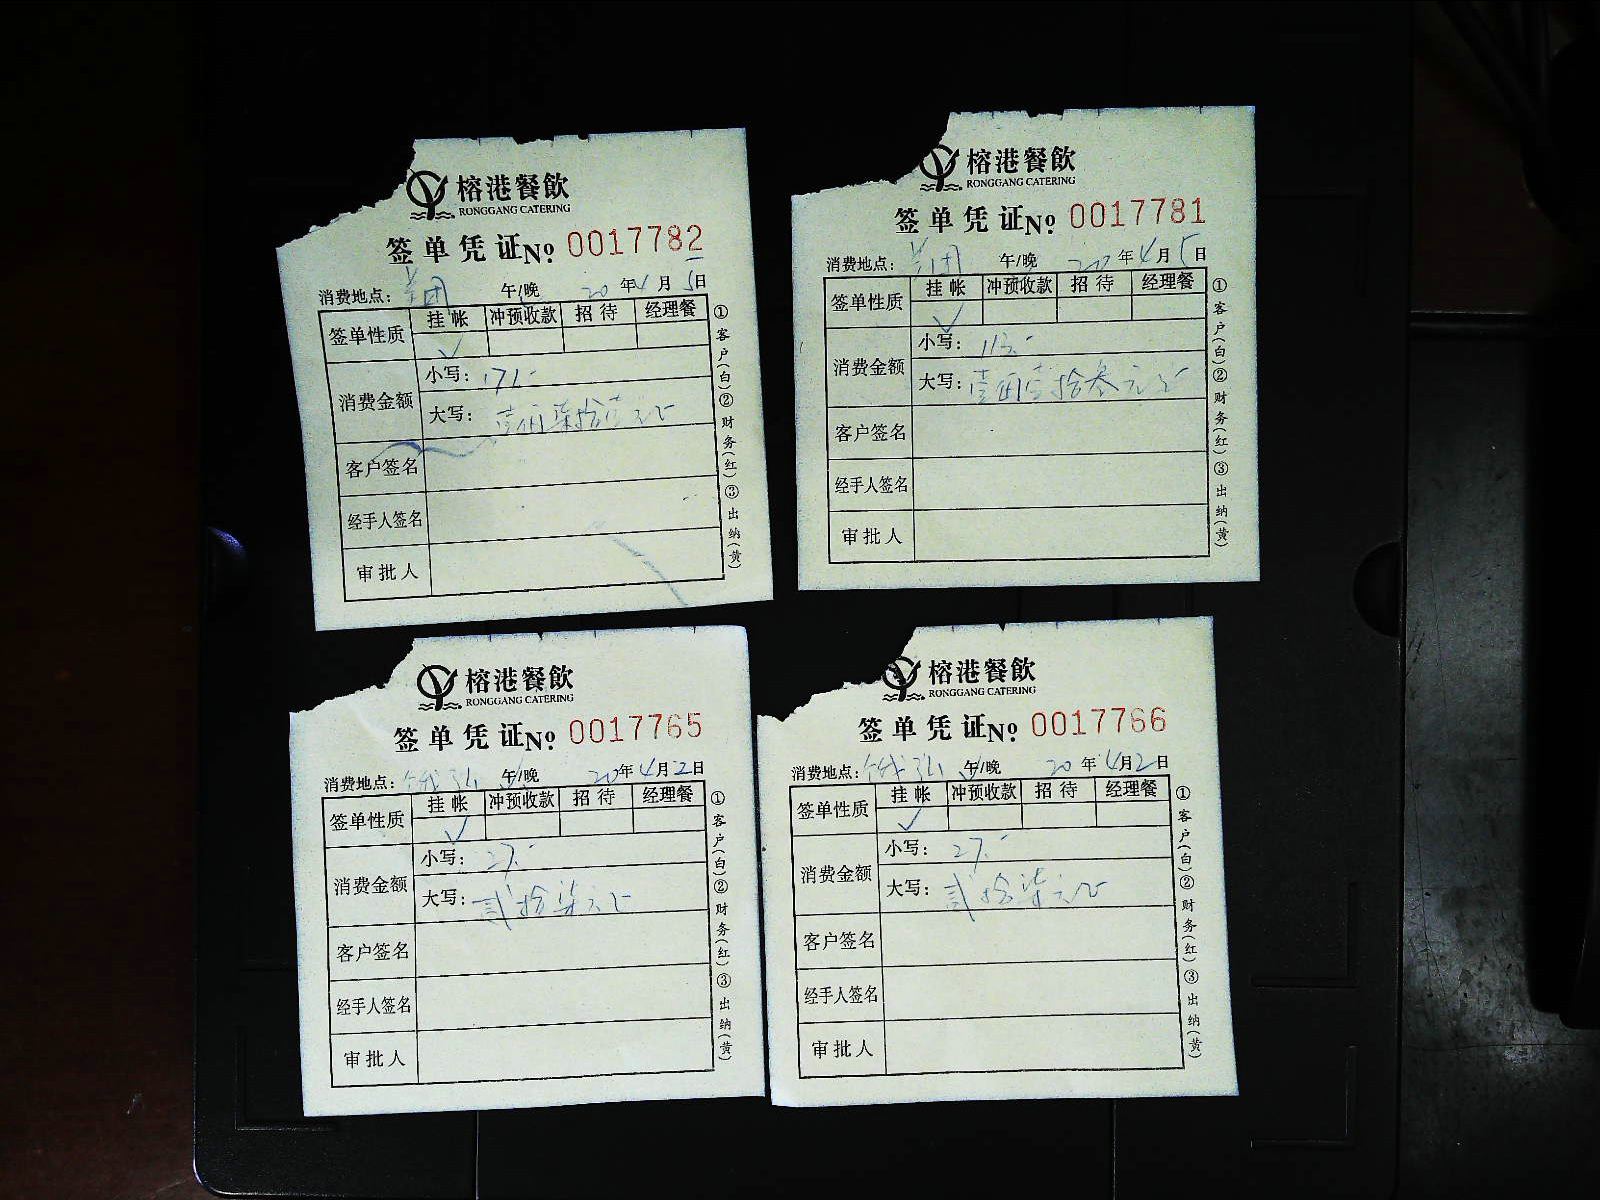 榕港餐飲
RONGGANG CATERING
签单凭证№ 0017782
消费地点：美团 午/晚 20年4月5日
签单性质 挂帐 冲预收款 招待 经理餐
✓
消费金额 小写：171.-
大写：壹佰柒拾壹元正
客户签名
经手人签名
审批人
①客户(白)②财务(红)③出纳(黄)
榕港餐飲
RONGGANG CATERING
签单凭证№ 0017781
消费地点：美团 午/晚 20年4月5日
签单性质 挂帐 冲预收款 招待 经理餐
✓
消费金额 小写：113.-
大写：壹佰壹拾叁元正
客户签名
经手人签名
审批人
①客户(白)②财务(红)③出纳(黄)
榕港餐飲
RONGGANG CATERING
签单凭证№ 0017765
消费地点：饿 午/晚 20年4月2日
签单性质 挂帐 冲预收款 招待 经理餐
✓
消费金额 小写：27.-
大写：贰拾柒元正
客户签名
经手人签名
审批人
①客户(白)②财务(红)③出纳(黄)
榕港餐飲
RONGGANG CATERING
签单凭证№ 0017766
消费地点：饿 午/晚 20年4月2日
签单性质 挂帐 冲预收款 招待 经理餐
✓
消费金额 小写：27.-
大写：贰拾柒元正
客户签名
经手人签名
审批人
①客户(白)②财务(红)③出纳(黄)